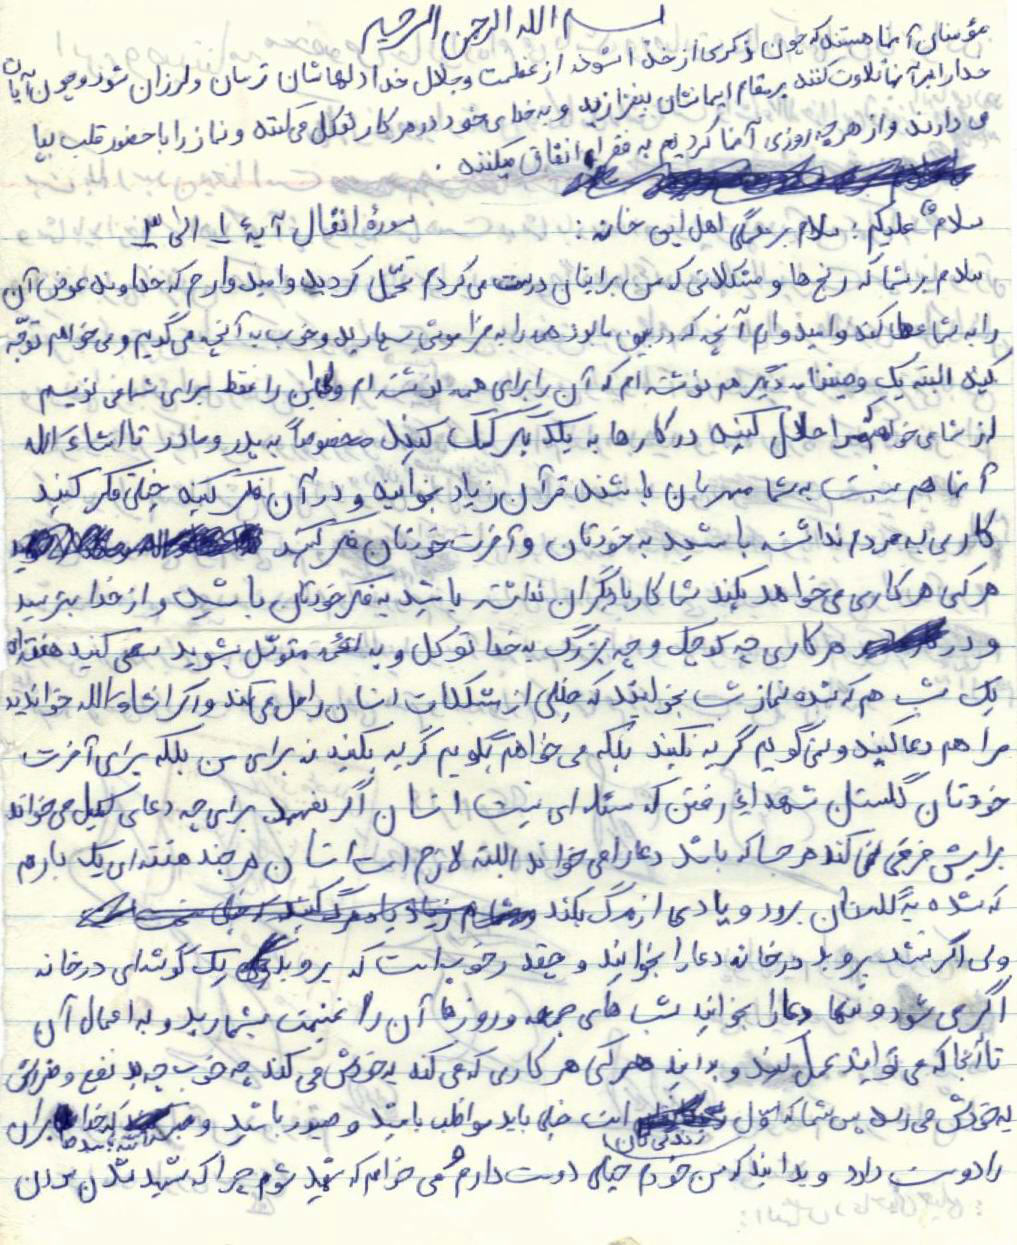 بسم الله الرحمن الرحیم
مؤمنان آنها هستند که چون ذکری از خدا شود از عظمت و جلال خدا دلهاشان ترسان و لرزان شود و چون آیات
خدا را بر آنها تلاوت کنند بر مقام ایمانشان بیفزاید و به خدای خود در هر کار توکل می‌کنند و نماز را با حضور قلب بپا
می دارند و از هر چه روزی آنها کردیم به فقرا انفاق میکنند .
سوره انفال آیه ۱ الی ۳
سلام علیکم : سلام بر همگی اهل این خانه :
سلام بر شما که رنج ها و مشکلاتی که من برایتان درست می کردم تحمّل کردید و امیدوارم که خداوند عوض آن
را به شما عطا کند و امیدوارم آنچه که در بین ما بوده همه را به فراموشی بسپارید و خوب به آنچه می گویم و می خواهم توجّه
کنید البته یک وصیتنامه دیگر هم نوشته ام که آن را برای همه نوشته ام و این را فقط برای شما می نویسم
از شما می خواهم که مرا حلال کنید در کارها به یکدیگر کمک کنید مخصوصاً به پدر و مادر تا انشاءالله
آنها هم نسبت به شما مهربان باشند قرآن زیاد بخوانید و در آن فکر کنید خیلی فکر کنید
کاری به مردم نداشته باشید به خودتان و آخرت خودتان فکر کنید
هر کس هر کاری می خواهد بکند شما کار با دیگران نداشته باشید به فکر خودتان باشید و از خدا بترسید
و در هر کاری چه کوچک و چه بزرگ به خدا توکل و به ائمّه متوسّل بشوید سعی کنید هفته ای
یک شب هم که شده نماز شب بخوانید که خیلی از مشکلات انسان را حل می کند و اگر انشاءالله خواندید
مرا هم دعا کنید و نمی گویم گریه نکنید بلکه می خواهم بگویم گریه بکنید نه برای من بلکه برای آخرت
خودتان گلستان شهداء رفتن که مسئله ای نیست انسان اگر بفهمد برای چه دعای کمیل می خواند
برایش فرقی نمی کند هر جا که باشد دعا را می خواند البته لازم است انسان هر چند هفته ای یک بار هم
که شده به گلستان برود و یادی از مرگ بکند
ولی اگر نشد بروید در خانه دعا را بخوانید و چقدر خوب است که بروید یک گوشه ای در خانه
اگر می شود و تنها دعا را بخوانید شب های جمعه و روزها آن را غنیمت بشمارید و به اعمال آن
تا آنجا که می توانید عمل کنید و بدانید هر کس هر کاری که می کند به خودش می کند چه خوب چه بد نفع و ضررش
به خودش می رسد پس شما که اول زندگی تان است خیلی باید مواظب باشید و صبور باشید و صبر داشته باشید که خدا صابران
را دوست دارد و بدانید که من خودم خیلی دوست دارم و می خواهم که شهید شوم چرا که شهید شدن من